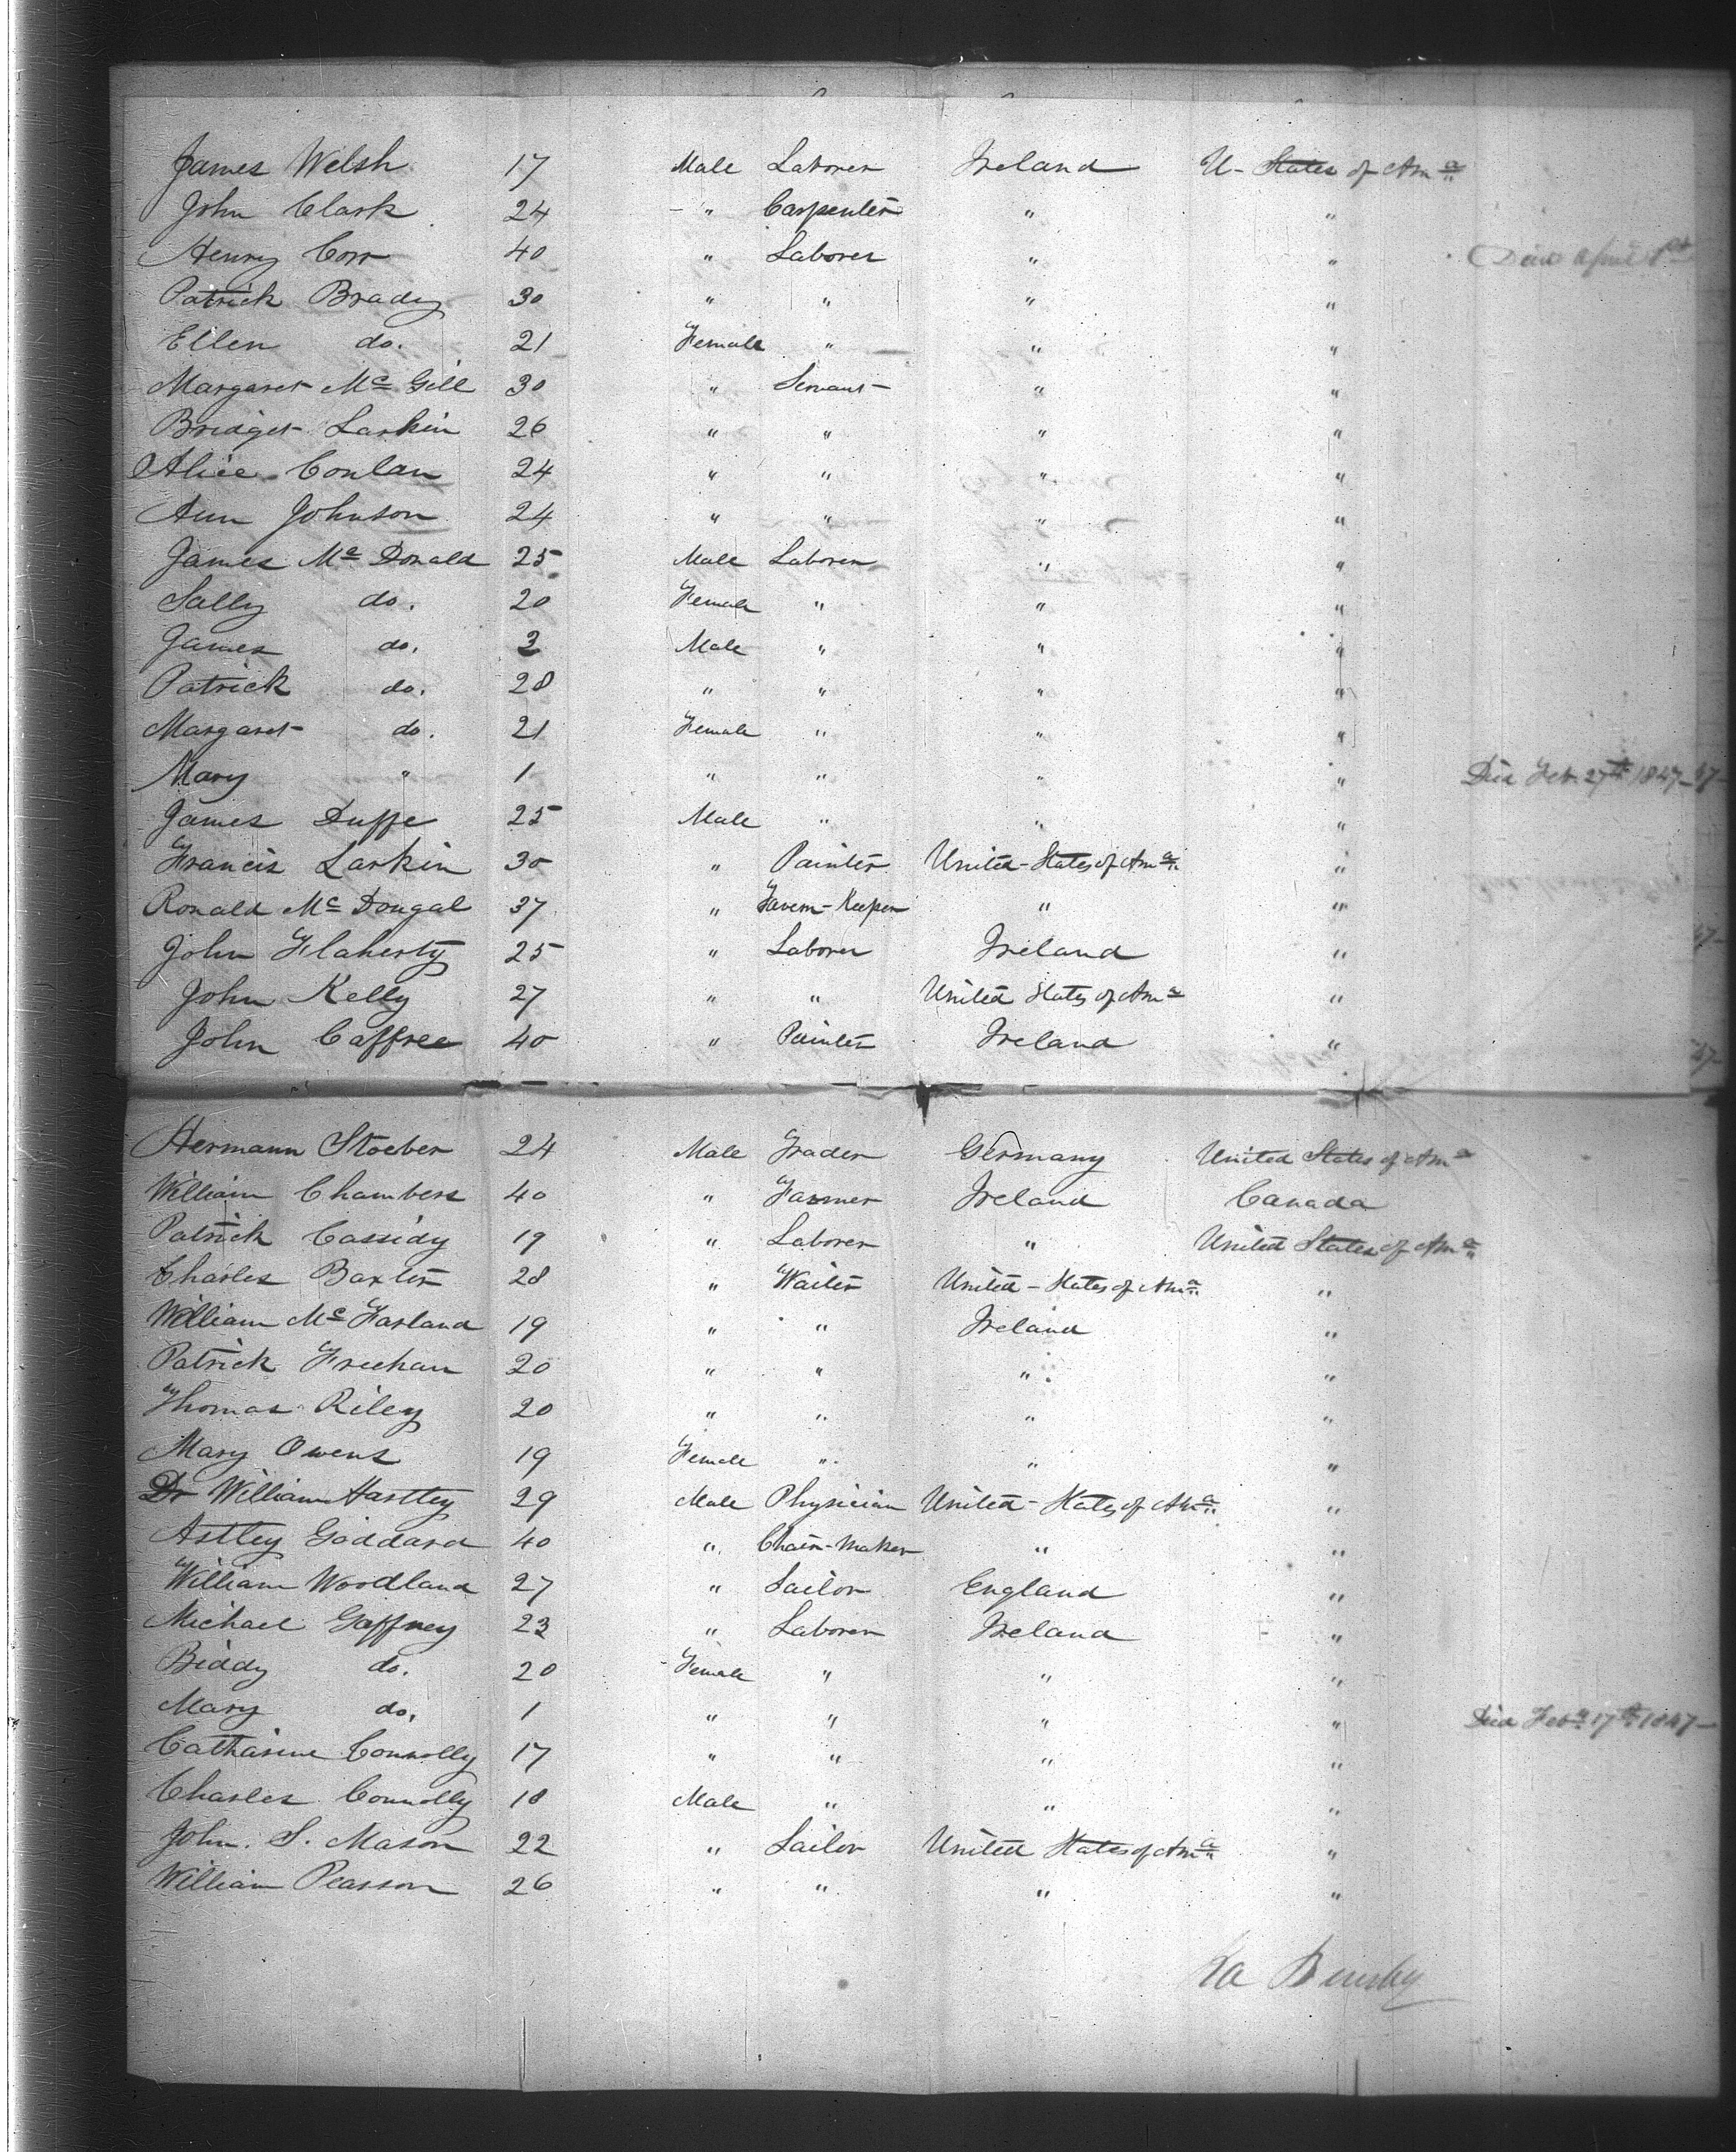 James Welsh 17 Male Laborer Ireland U- States of Ama
John Clark 24 " Carpenter " "
Henry Corr 40 " Laborer " " Died April 1st
Patrick Brady 30 " " " "
Ellen do. 21 Female " " "
Margaret Mc Gill 30 " Servant " "
Bridget Larkin 26 " " " "
Alice Conlan 24 " " " "
Ann Johnson 24 " " " "
James Mc Donald 25 Male Laborer " "
Sally do. 20 Female " " "
James do. 2 Male " " "
Patrick do. 28 " " " "
Margaret do. 21 Female " " "
Mary " 1 " " " " Died Feb. 27th 1847-
James Duffe 25 Male " " "
Francis Larkin 30 " Painter United-States of Ama "
Ronald Mc Dougal 37 " Tavern-Keeper " "
John Flaherty 25 " Laborer Ireland "
John Kelly 27 " " United States of Ama "
John Caffree 40 " Painter Ireland "
Hermann Stoeber 24 Male Trader Germany United States of Ama
William Chambers 40 " Farmer Ireland Canada
Patrick Cassidy 19 " Laborer " United States of Ama
Charles Baxter 28 " Waiter United-States of Ama "
William Mc Farland 19 " " Ireland "
Patrick Freehan 20 " " " "
Thomas Riley 20 " " " "
Mary Owens 19 Female " " "
Dr William Hartley 29 Male Physician United-States of Ama "
Astley Goddard 40 " Chair-Maker " "
William Woodland 27 " Sailor England "
Michael Gaffney 23 " Laborer Ireland "
Biddy do. 20 Female " " "
Mary do. 1 " " " " Died Feby 17th 1847-
Catharine Connolly 17 " " " "
Charles Connolly 18 Male " " "
John. S. Mason 22 " Sailor United States of Ama "
William Pearson 26 " " " "